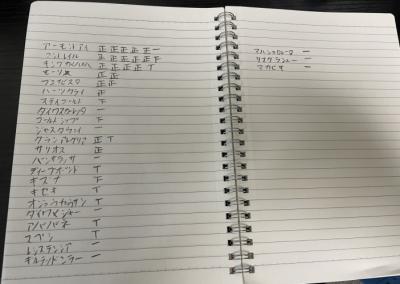 アーモンドアイ 正正正正一
コントレイル 正正正正下
キングカメハメハ 正正正正丅
正正
ラニビスタ 正正
ハーツクライ 正
ステイゴールド 下
ダイワスカーレット 一
ゴールドシップ 下
ジャスタウェイ 一
グランアレグリア 正丅
サリオス 正
パンサラッサ 一
ディープボンド 丅
キズナ 下
キセキ 丅
オジュウチョウサン 丅
ダイワメジャー 一
アパパネ 丅
丅
レシステンシア 一
キルテンハンター 一
マルシュロレーヌ 一
リスグラシュー 一
マカヒキ 一